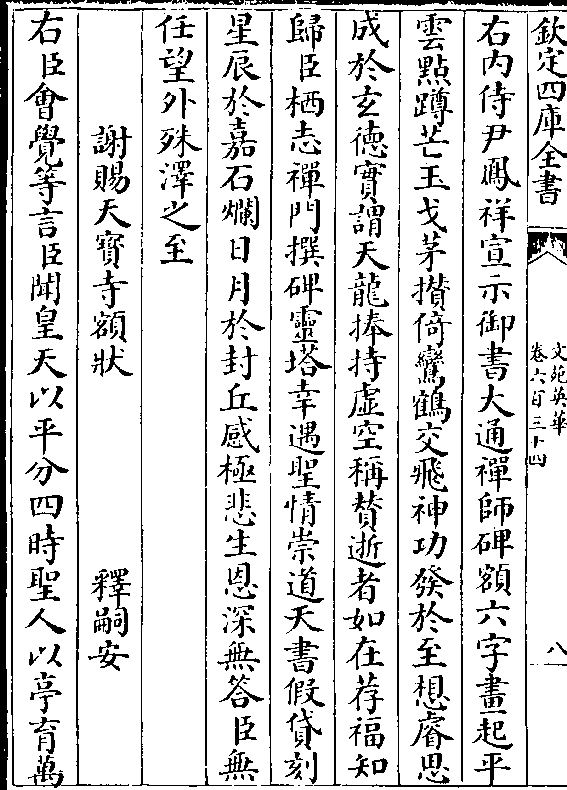 欽定四庫全書
文苑英華
卷六百三十四
八
右内侍尹鳳祥宣示御書大通禪師碑額六字畫起平
雲點蹲芒玉戈茅攢倚鸞鶴交飛神功發於至想睿思
成於玄德實謂天龍捧持虛空稱賛逝者如在荐福知
歸臣栖志禪門撰碑靈塔幸遇聖情崇道天書假貸刻
星辰於嘉石爛日月於封丘感極悲生恩深無答臣無
任望外殊澤之至
謝賜天寶寺額狀
釋嗣安
右臣會覺等言臣聞皇天以平分四時聖人以亭育萬